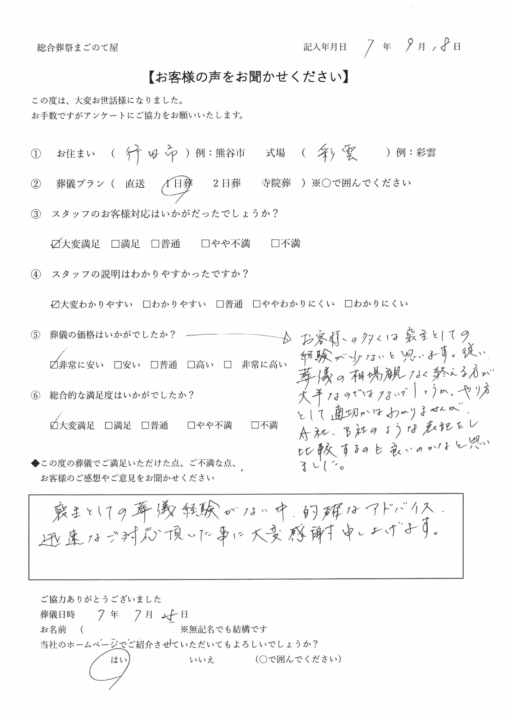 総合葬祭まごのて屋　　記入年月日　7 年 9 月 18 日
【お客様の声をお聞かせください】
この度は、大変お世話様になりました。
お手数ですがアンケートにご協力をお願いいたします。
①　お住まい　（ 行田市 ）例：熊谷市　　式場　（ 彩雲 ）例：彩雲
②　葬儀プラン（　直送　　1日葬　　2日葬　　寺院葬　）※〇で囲んでください
③　スタッフのお客様対応はいかがだったでしょうか？
☑大変満足　□満足　□普通　　□やや不満　　□不満
④　スタッフの説明はわかりやすかったですか？
☑大変わかりやすい　□わかりやすい　□普通　□ややわかりにくい　□わかりにくい
⑤　葬儀の価格はいかがでしたか？
☑非常に安い　□安い　□普通　□高い　□　非常に高い
お客様の多くは喪主としての
経験が少ないと思います。従い
葬儀の相場観なく終える方が
大半なのではないでしょうか。やり方
として適切かはわかりませんが、
A社、B社のような表記をし
比較するのも良いのかなと思い
ました。
⑥　総合的な満足度はいかがでしたか？
☑大変満足　□満足　□普通　　□やや不満　　□不満
◆この度の葬儀でご満足いただけた点、ご不満な点、
お客様のご感想やご意見をお聞かせください
喪主としての葬儀経験がない中、的確なアドバイス、
迅速なご対応頂いた事に大変感謝申し上げます。
ご協力ありがとうございました
葬儀日時　7 年 7 月 日
お名前　（　　　※無記名でも結構です
当社のホームページでご紹介させていただいてもよろしいでしょうか？
はい　　　いいえ　　　（〇で囲んでください）